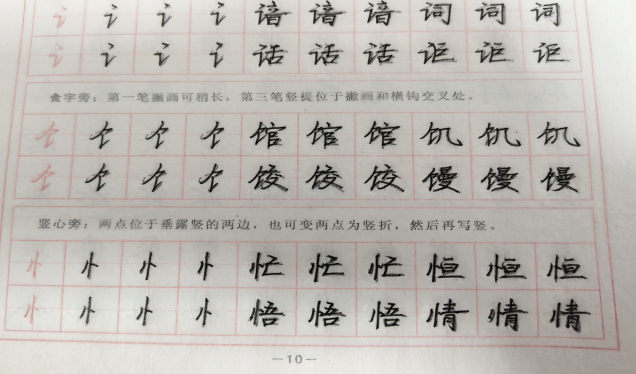 讠 讠 讠 讠 谙 谙 谙 词 词 词
讠 讠 讠 讠 话 话 话 讵 讵 讵
食字旁：第一笔撇画可稍长，第三笔竖提位于撇画和横钩交叉处。
饣 饣 饣 饣 馆 馆 馆 饥 饥 饥
饣 饣 饣 饣 饺 饺 饺 馒 馒 馒
竖心旁：两点位于垂露竖的两边，也可变两点为竖折，然后再写竖。
忄 忄 忄 忄 忙 忙 忙 恒 恒 恒
忄 忄 忄 忄 悟 悟 悟 情 情 情
—10—